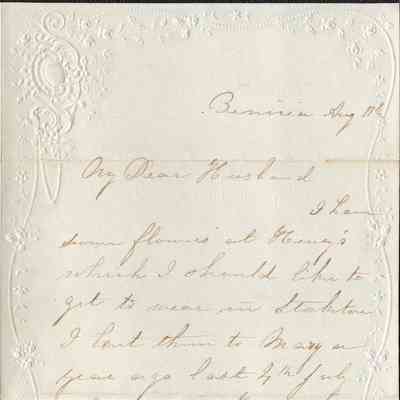 Benicia Aug 11th
My Dear Husband
I have
some flowers at Henry's
which I should like to
get to wear in Stockton
I lent them to Mary a
year ago last 4th July